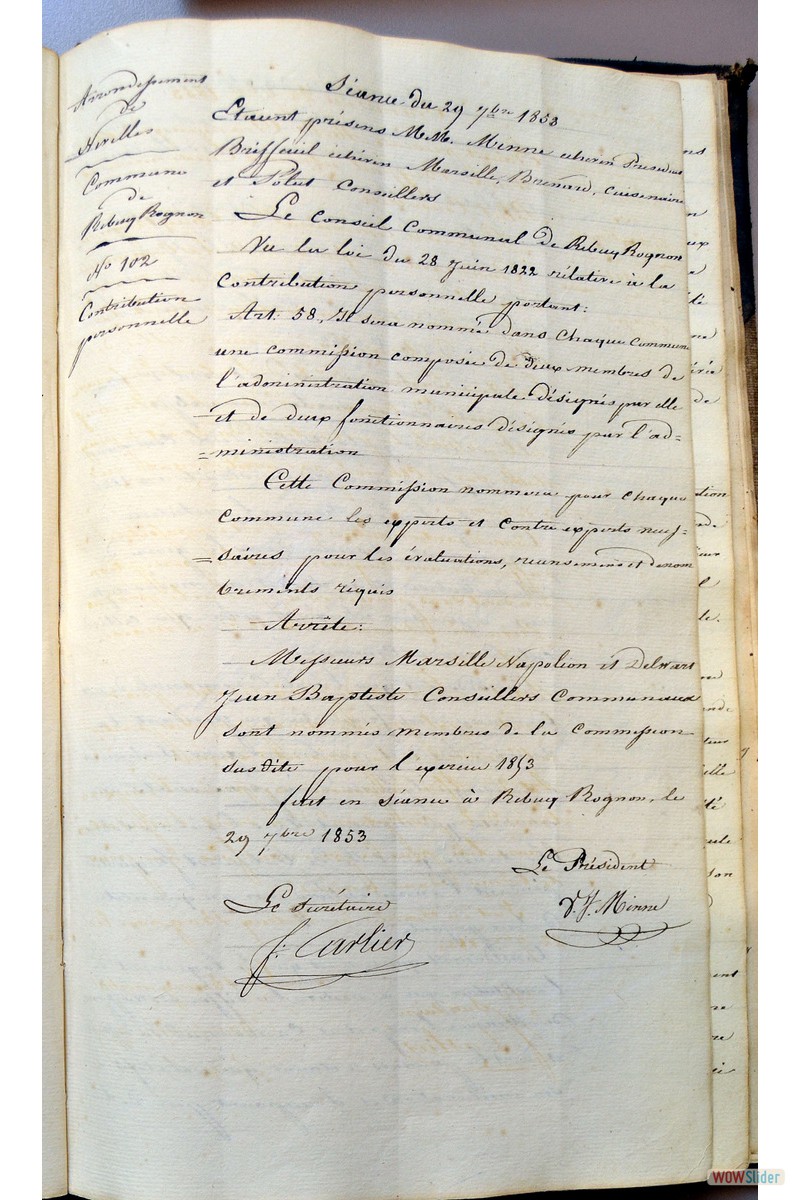 Arrondissement
de
Nivelles
Commune
de
Rebecq Rognon
No 102
Contribution
personnelle
Séance du 29 7bre 1853
Etaient présens M.M. Minne echevin Président
Briffeuil echevin Marsille, Brenard, Cuisenaire
et Pôlet Conseillers
Le Conseil Communal de Rebecq Rognon
Vu la loi du 28 Juin 1822 relative à la
Contribution personnelle portant:
Art: 58. Il sera nommé dans chaque Commune
une commission composée de deux membres de
l'administration municipale désignés par elle
et de deux fonctionnaires désignés par l'ad=
=ministration
Cette Commission nommera pour chaque
Commune les experts et Contre experts néces=
=saires pour les évaluations, recensemens et dénom
brements réquis
Arrête:
Messieurs Marsille Napoléon et Delwart
Jean Baptiste Conseillers Communaux
sont nommés membres de la Commission
susdite pour l'exercice 1853
fait en séance à Rebecq Rognon, le
29 7bre 1853
Le Président
Le Sécrétaire
V. J. Minne
f. Carlier
WOWSlider